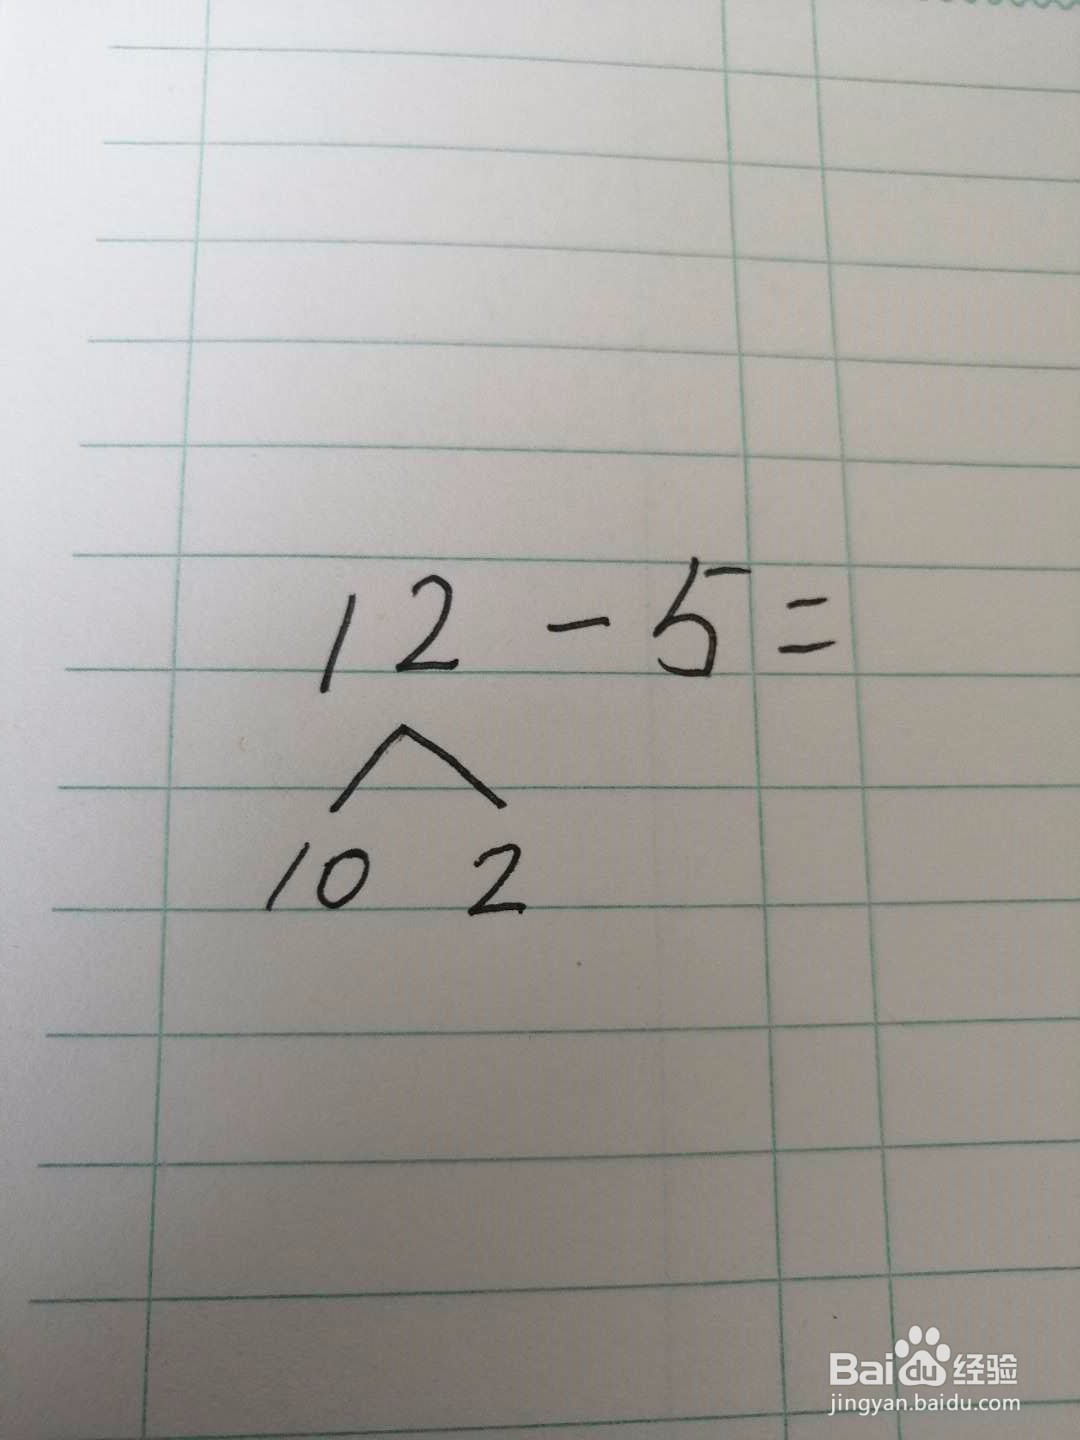 12-5=
10 2
Baidu经验
jingyan.baidu.com